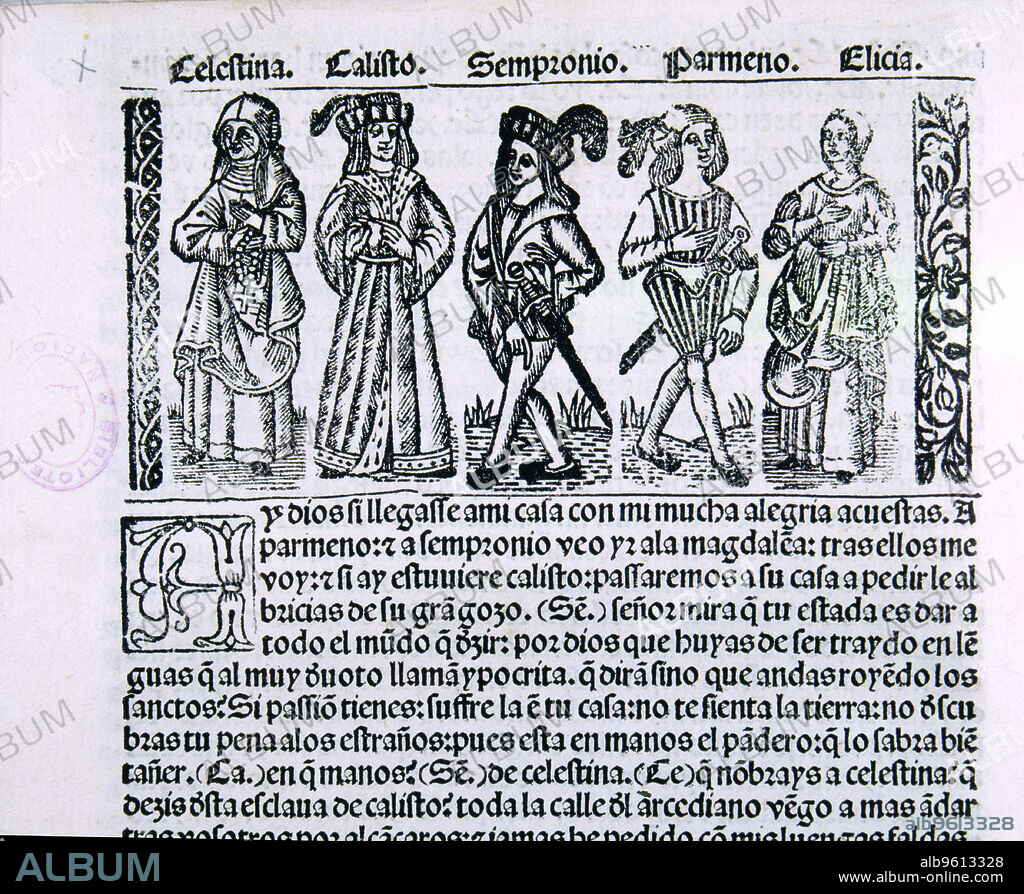 Celestina. Calisto. Sempronio. Parmeno. Elicia.
Ay dios si llegasse a mi casa con mi mucha alegria acuestas. A
parmeno: ⁊ a sempronio veo yr ala magdalẽa: tras ellos me
voy: ⁊ si ay estuuiere calisto: passaremos a su casa a pedir le al
bricias de su grã gozo. (Sẽ.) señor mira q̃ tu estada es dar a
todo el mũdo q̃ ðzir: por dios que huyas de ser traydo en lẽ
guas q̃ al muy ðuoto llamã ypocrita. q̃ dirã sino que andas royẽdo los
sanctos? Si passiõ tienes: suffre la ẽ tu casa: no te sienta la tierra: no ðscu
bras tu pena alos estraños: pues esta en manos el pãdero: q̃ lo sabra biẽ
tañer. (Ca.) en q̃ manos? (Sẽ.) de celestina. (Ce) q̃ nõbrays a celestina? q̃
dezis ðsta esclaua de calisto? toda la calle ðl Arcediano vẽgo a mas ãdar
tras vosotros por alcãçaros: ⁊ jamas he pedido cõ mis luengas faldas.
BIBLIOTE
NACION
ALBUM
alb9613328
ALBUM
alb9613328
www.album-online.com